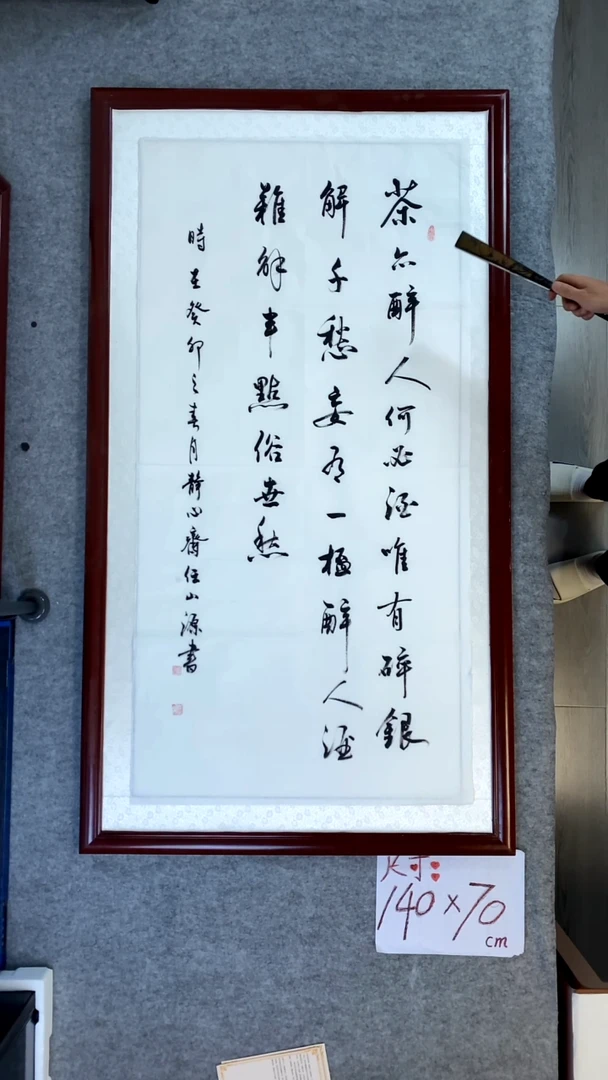 茶亦醉人何必酒唯有碎銀
解千愁妄有一醉人酒
難解半點俗世愁
時在癸卯之春月靜心齋任山源書
尺寸:
140×70
cm